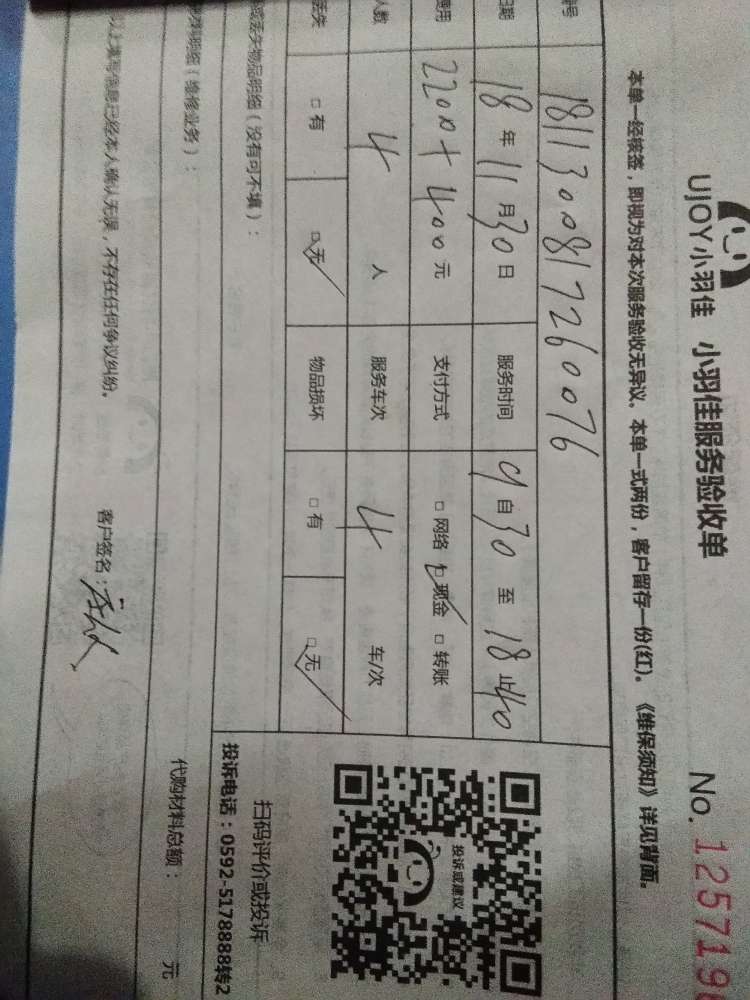 UJOY小羽佳 小羽佳服务验收单 No. 125719
本单一经核签，即视为对本次服务验收无异议。本单一式两份，客户留存一份(红)。《维保须知》详见背面。
号 1811300817260076
日期 18年11月30日 服务时间 自9 30至18止40
费用 2200+400元 支付方式 □网络 □现金 □转账
人数 4人 服务车次 4车/次
丢失 □有 □无 物品损坏 □有 □无
或丢失物品明细（没有可不填）：
料明细（维修业务）：
代购材料总额： 元
以上填写信息已经本人确认无误，不存在任何争议纠纷。
客户签名：
投诉或建议
扫码评价或投诉
投诉电话：0592-5178888转2